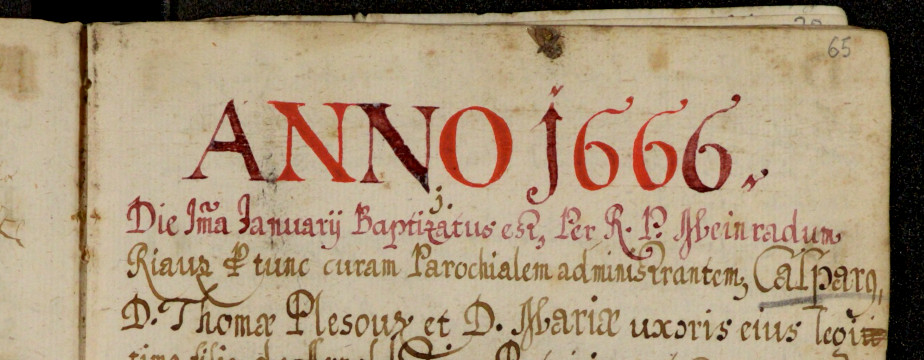 65
ANNO 1666.
Die J̃ma Januarij Baptizatus est, Per R. P. Meinradum
Riauz tunc curam Parochialem administrantem, Casparq,
D. Thomæ Plesouz et D. Mariæ uxoris eius legit
time filiq